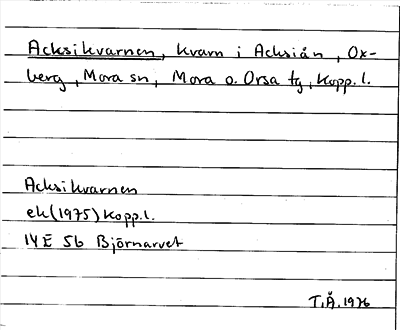 Acksikvarnen, kvarn i Acksiån, Ox-
berg, Mora sn, Mora o. Orsa tg, Kopp. l.
Acksikvarnen
ek (1975) Kopp. l.
14E 5b Björnarvet
T.Å. 1976